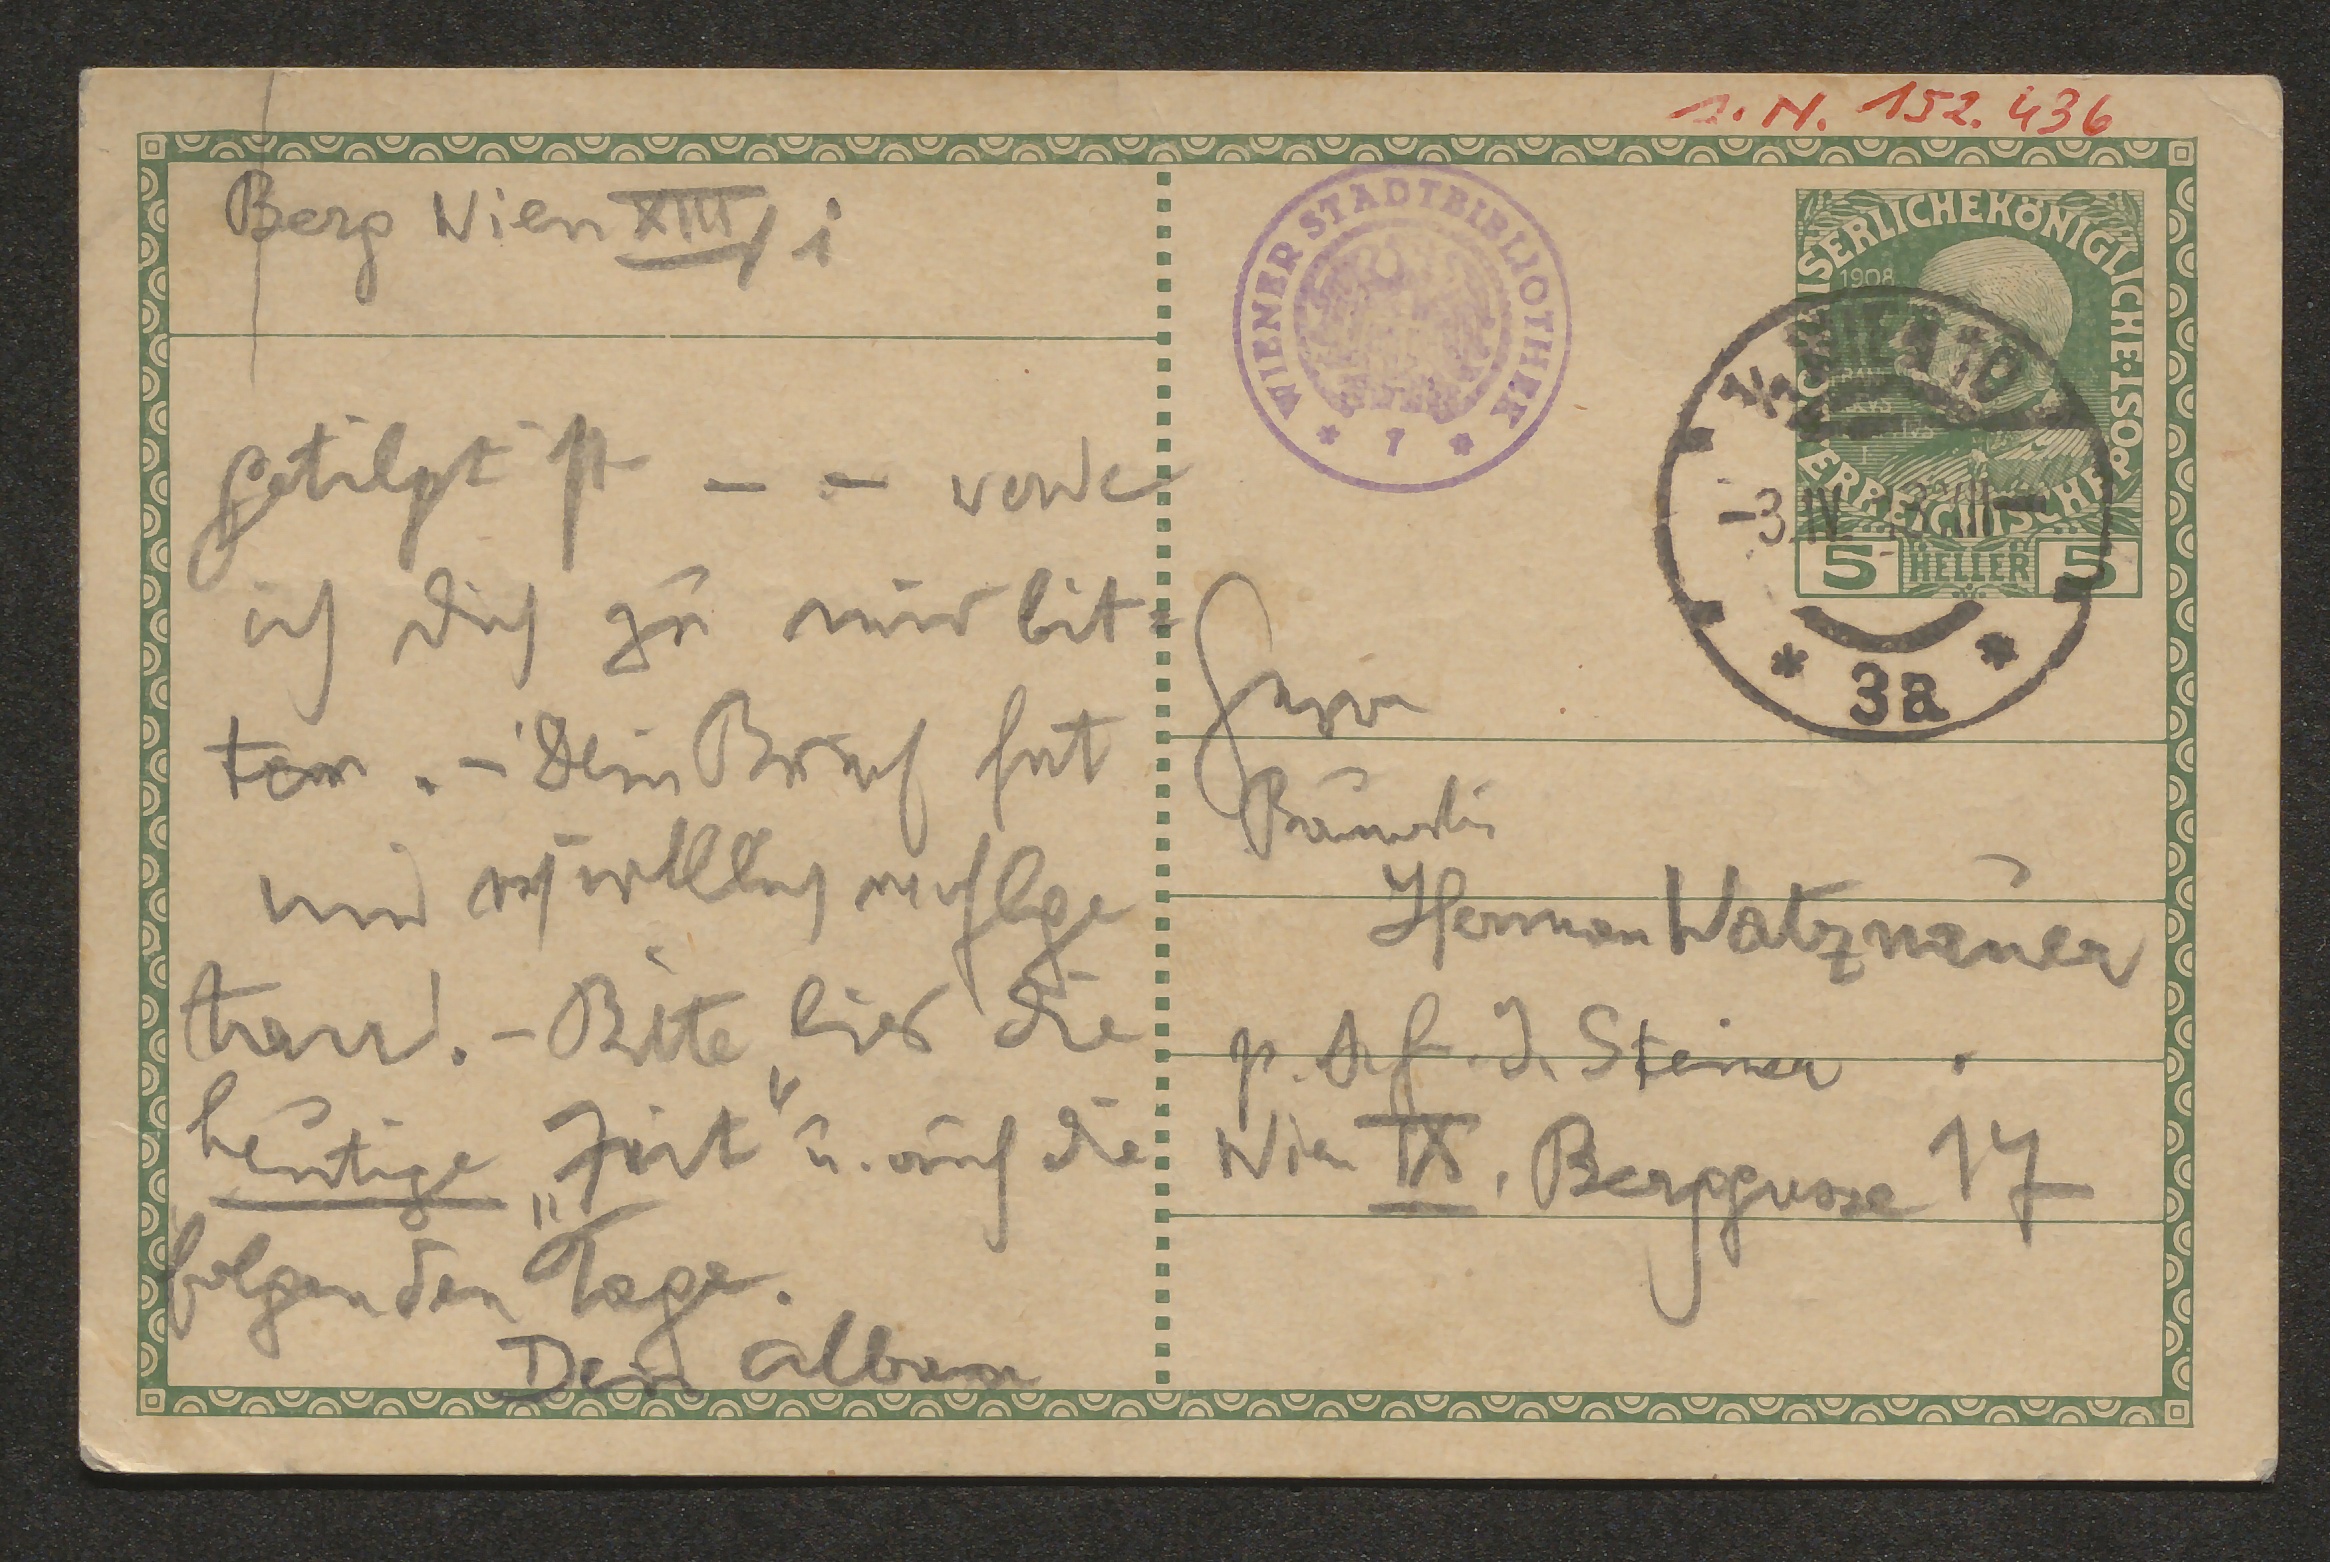 J. N. 152.436
Berg Wien XIII/1
getilgt ist – – werde
ich dich zu mir bit=
ten. – Dein Brief hat
mir wohl
– Bitte, lies die
heutige „Zeit“ u. auch die
folgenden Tage.
Dein Alban
WIENER STADTBIBLIOTHEK
* 7 *
KAISERLICHE KÖNIGLICHE
ÖSTERREICHISCHE POST
1908
5 HELLER 5
WIEN
-3.IV. 13
* 3a *
Herrn
Hermann Watznauer
p. Adr. J. Steiner
Wien IX, Berggasse 17